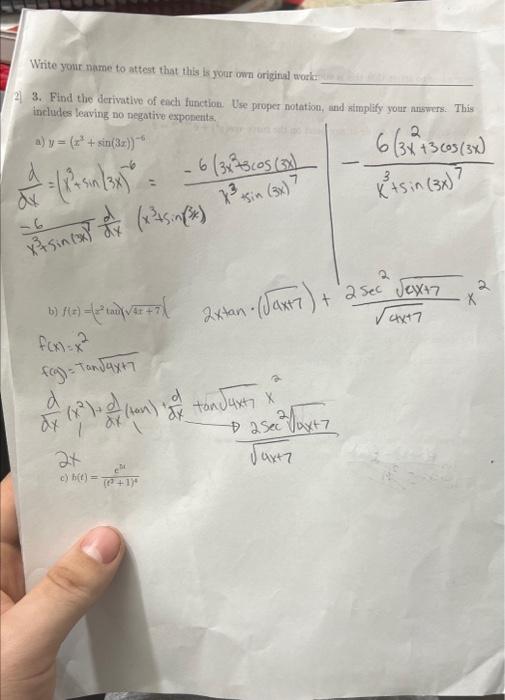 Write your name to attest that this is your own original work:
2] 3. Find the derivative of each function. Use proper notation, and simplify your answers. This
includes leaving no negative exponents.
a) y = (x³ + sin(3x))⁻⁶
d/dx = (x³+sin(3x))⁻⁶ = -6(3x²+3cos(3x) / x³+sin(3x)⁷
-6 / x³+sin(3x)⁷ d/dx (x³+sin(3x))
- 6(3x²+3cos(3x) / x³+sin(3x)⁷
b) f(x) = (x² tan)(√4x + 7)
2x tan·(√4x+7) + 2sec²√4x+7 / √4x+7 x²
f(x)=x²
f(g)=Tan√4x+7
d/dx (x²)+ d/dx (tan) + d/dx tan√4x+7 x²
2sec²√4x+7 / √4x+7
2x
c) h(t) = e⁵ᵗ / (t² + 1)⁴